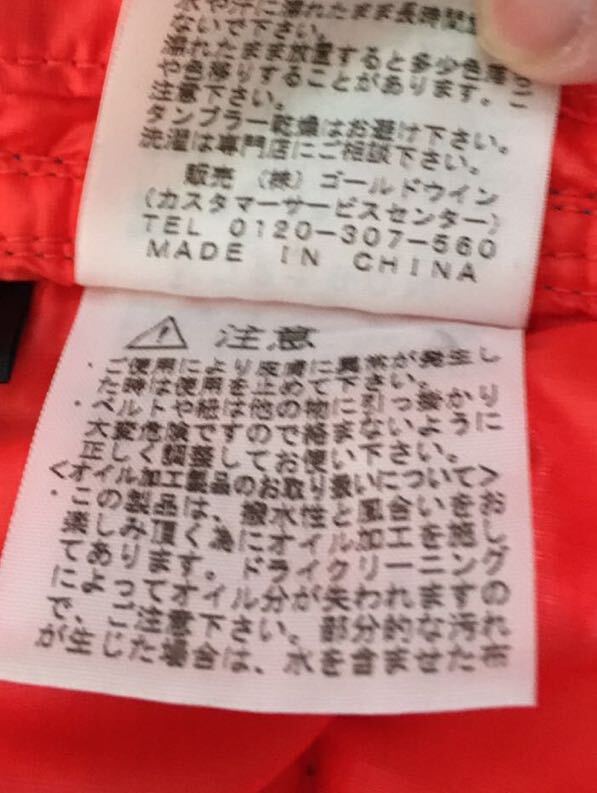 水や汗に濡れたまま長時間
ないで下さい。
濡れたまま放置すると多少色落ち
や色移りすることがあります。ご
注意下さい。
タンブラー乾燥はお避け下さい。
洗濯は専門店にご相談下さい。
販売 (株) ゴールドウイン
(カスタマーサービスセンター)
TEL 0120-307-560
MADE IN CHINA
注意
・ご使用により皮膚に異常が発生し
た時は使用を止めて下さい。
・ベルトや紐は他の物に引っ掛かり
大変危険ですので絡まないように
正しく調整してお使い下さい。
<オイル加工製品のお取り扱いについて>
・この製品は、撥水性と風合いをお
楽しみ頂く為にオイル加工を施し
てあります。ドライクリーニング
によってオイル分が失われますの
で、ご注意下さい。部分的な汚れ
が生じた場合は、水を含ませた布